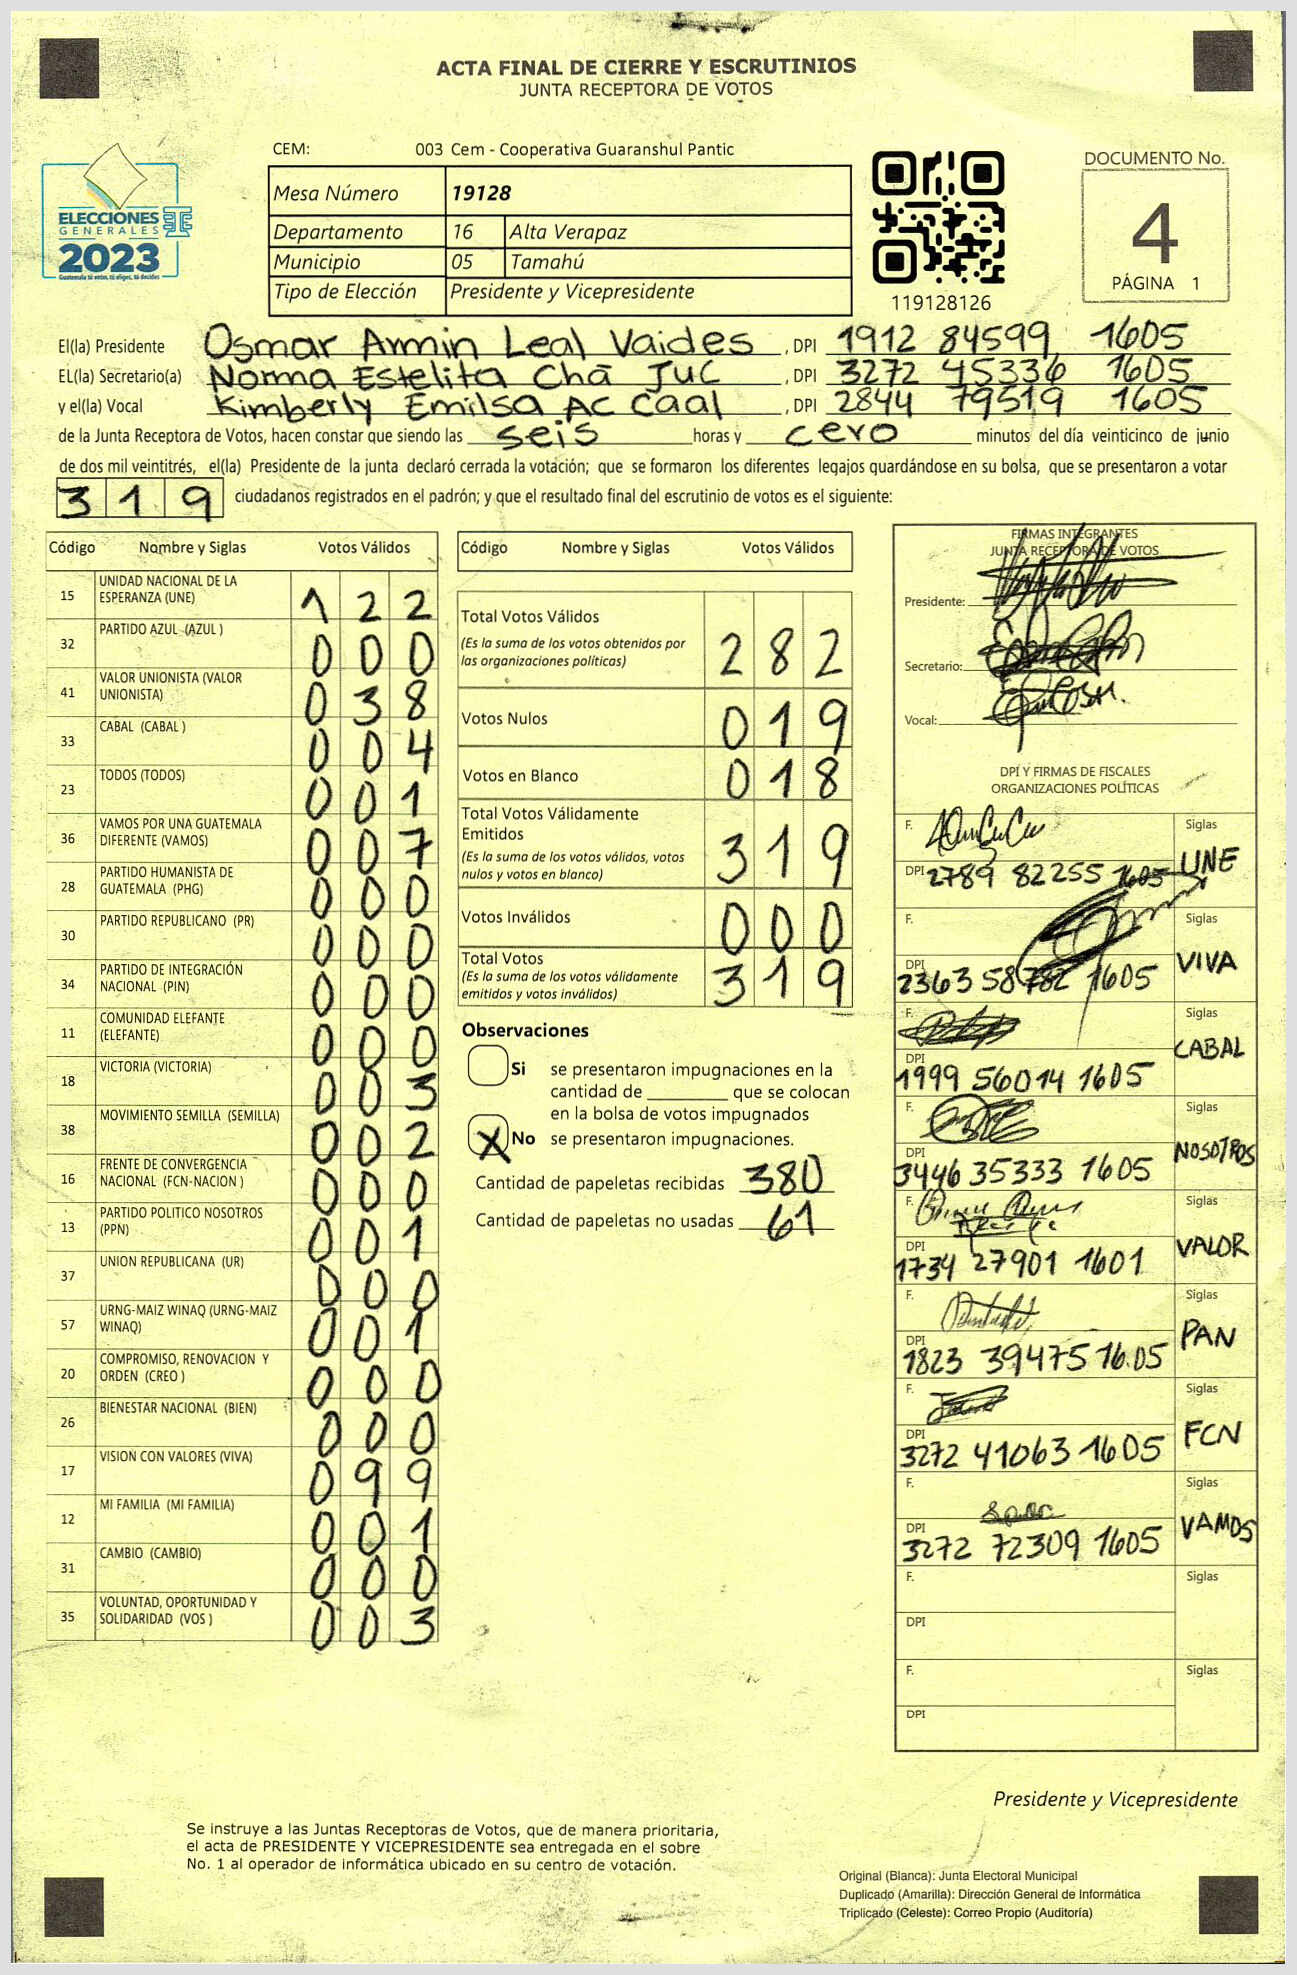 ACTA FINAL DE CIERRE Y ESCRUTINIOS
JUNTA RECEPTORA DE VOTOS
CEM: 003 Cem - Cooperativa Guaranshul Pantic
DOCUMENTO No.
4
PÁGINA 1
ELECCIONES
GENERALES
2023
Guatemala tú votas, tú eliges, tú decides
Mesa Número 19128
Departamento 16 Alta Verapaz
Municipio 05 Tamahú
Tipo de Elección Presidente y Vicepresidente
119128126
El(la) Presidente Osmar Armin Leal Vaides , DPI 1912 84599 1605
EL(la) Secretario(a) Norma Estelita Chá Juc , DPI 3272 45336 1605
y el(la) Vocal Kimberly Emilsa AC Caal , DPI 2844 79519 1605
de la Junta Receptora de Votos, hacen constar que siendo las seis horas y cero minutos del día veinticinco de junio
de dos mil veintitrés, el(la) Presidente de la junta declaró cerrada la votación; que se formaron los diferentes legajos guardándose en su bolsa, que se presentaron a votar
319 ciudadanos registrados en el padrón; y que el resultado final del escrutinio de votos es el siguiente:
Código Nombre y Siglas Votos Válidos
15 UNIDAD NACIONAL DE LA ESPERANZA (UNE) 1 2 2
32 PARTIDO AZUL (AZUL ) 0 0 0
41 VALOR UNIONISTA (VALOR UNIONISTA) 0 3 8
33 CABAL (CABAL ) 0 0 4
23 TODOS (TODOS) 0 0 1
36 VAMOS POR UNA GUATEMALA DIFERENTE (VAMOS) 0 0 7
28 PARTIDO HUMANISTA DE GUATEMALA (PHG) 0 0 0
30 PARTIDO REPUBLICANO (PR) 0 0 0
34 PARTIDO DE INTEGRACIÓN NACIONAL (PIN) 0 0 0
11 COMUNIDAD ELEFANTE (ELEFANTE) 0 0 0
18 VICTORIA (VICTORIA) 0 0 3
38 MOVIMIENTO SEMILLA (SEMILLA) 0 0 2
16 FRENTE DE CONVERGENCIA NACIONAL (FCN-NACION ) 0 0 0
13 PARTIDO POLITICO NOSOTROS (PPN) 0 0 1
37 UNION REPUBLICANA (UR) 0 0 0
57 URNG-MAIZ WINAQ (URNG-MAIZ WINAQ) 0 0 1
20 COMPROMISO, RENOVACION Y ORDEN (CREO ) 0 0 0
26 BIENESTAR NACIONAL (BIEN) 0 0 0
17 VISION CON VALORES (VIVA) 0 9 9
12 MI FAMILIA (MI FAMILIA) 0 0 1
31 CAMBIO (CAMBIO) 0 0 0
35 VOLUNTAD, OPORTUNIDAD Y SOLIDARIDAD (VOS ) 0 0 3
Código Nombre y Siglas Votos Válidos
Total Votos Válidos
(Es la suma de los votos obtenidos por las organizaciones políticas) 2 8 2
Votos Nulos 0 1 9
Votos en Blanco 0 1 8
Total Votos Válidamente Emitidos
(Es la suma de los votos válidos, votos nulos y votos en blanco) 3 1 9
Votos Inválidos 0 0 0
Total Votos
(Es la suma de los votos válidamente emitidos y votos inválidos) 3 1 9
Observaciones
Si se presentaron impugnaciones en la
cantidad de ________ que se colocan
en la bolsa de votos impugnados
X No se presentaron impugnaciones.
Cantidad de papeletas recibidas 380
Cantidad de papeletas no usadas 61
FIRMAS INTEGRANTES
JUNTA RECEPTORA DE VOTOS
Presidente:
Secretario:
Vocal:
DPI Y FIRMAS DE FISCALES
ORGANIZACIONES POLÍTICAS
F. Siglas
DPI 2789 82255 1605 UNE
F. Siglas
DPI 2363 58782 1605 VIVA
F. Siglas
DPI 1999 56014 1605 CABAL
F. Siglas
DPI 3446 35333 1605 NOSOTROS
F. Siglas
DPI 1734 27901 1601 VALOR
F. Siglas
DPI 1823 39475 1605 PAN
F. Siglas
DPI 3272 41063 1605 FCN
F. Siglas
DPI 3272 72309 1605 VAMOS
F. Siglas
DPI
F. Siglas
DPI
Presidente y Vicepresidente
Se instruye a las Juntas Receptoras de Votos, que de manera prioritaria,
el acta de PRESIDENTE Y VICEPRESIDENTE sea entregada en el sobre
No. 1 al operador de informática ubicado en su centro de votación.
Original (Blanca): Junta Electoral Municipal
Duplicado (Amarilla): Dirección General de Informática
Triplicado (Celeste): Correo Propio (Auditoría)